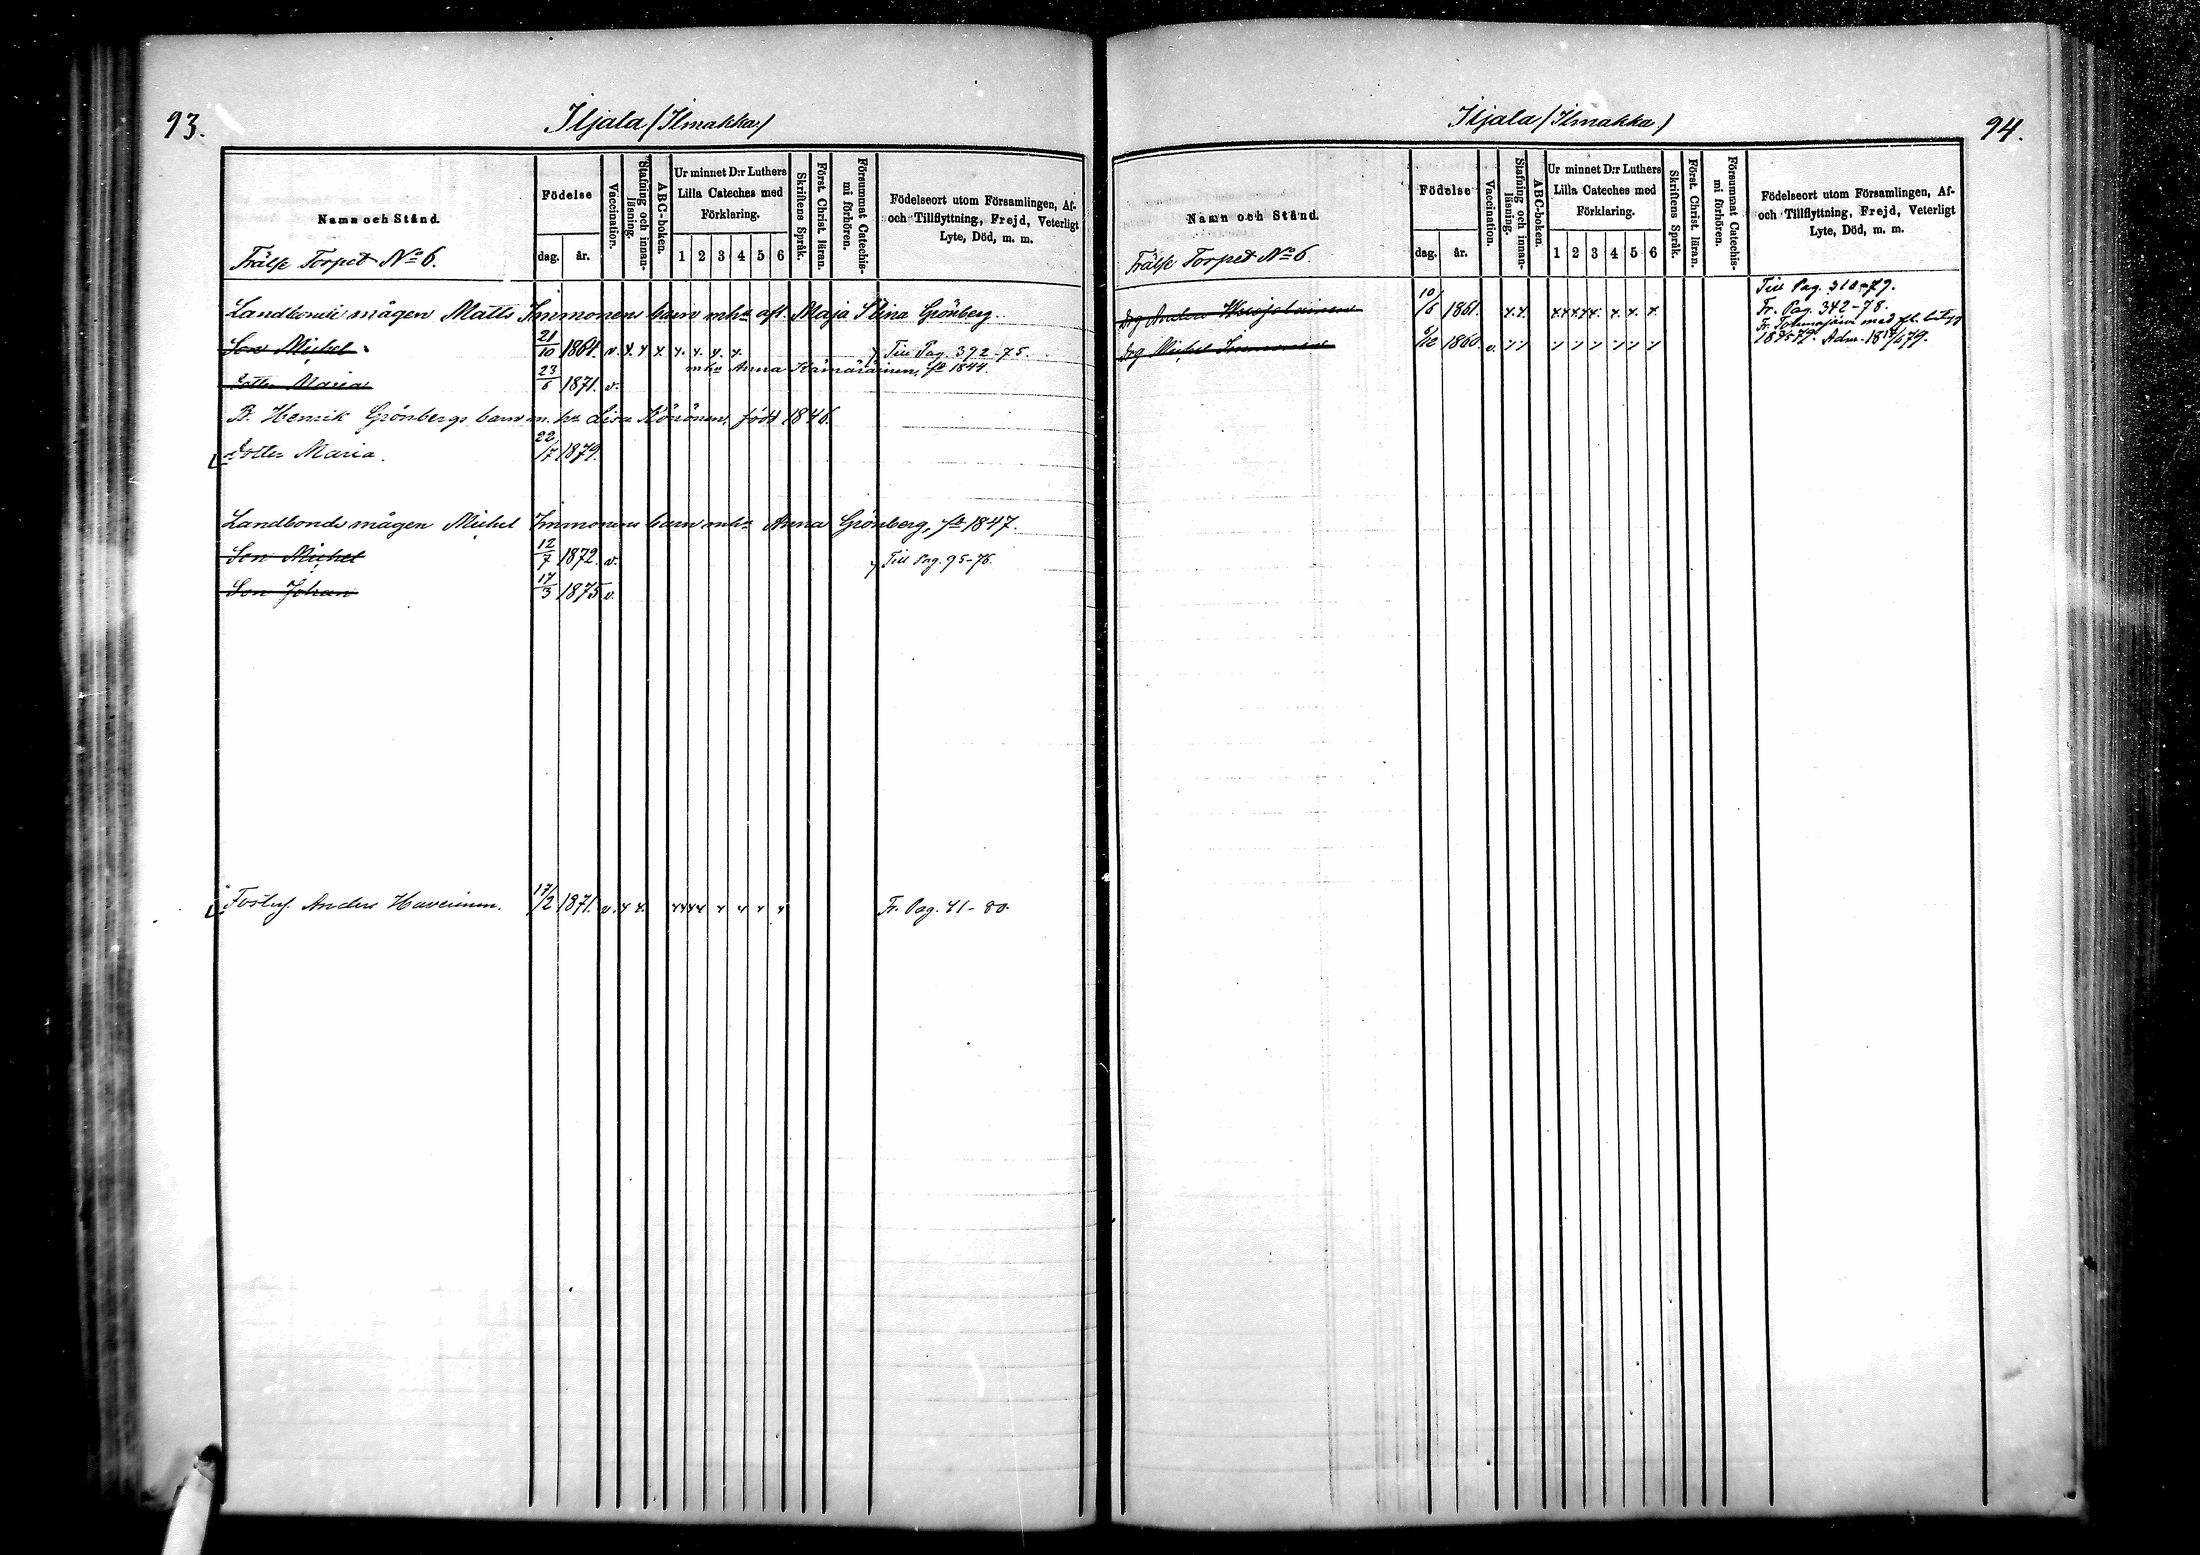 93.
Iljala (Ilmakka)
Namn och Stånd.
Födelse
dag. år.
Vaccination.
Stafning och innan-läsning.
ABC-boken.
Ur minnet D:r Luthers
Lilla Cateches med
Förklaring.
1 2 3 4 5 6
Skriftens Språk.
Först. Christ. läran.
Försummat Catechis-mi förhören.
Födelseort utom Församlingen, Af-
och Tillflyttning, Frejd, Veterligt
Lyte, Död, m. m.
Frälse Torpet No 6.
Landbonde mågen Matts Immonens barn mhu aft. Maja Stina Grönberg.
Son Michel 21/10 1864. v. Till Pag. 392-75.
mhu Anna Hämäläinen, fd 1844.
dotter Maria 23/6 1871. v.
B. Henrik Grönbergs barn m. hu Lisa Könönen, född 1846.
dotter Maria. 22/7 1879.
Landbonde mågen Michel Immonens barn mhu Anna Grönberg, fd 1847.
Son Michel 12/7 1872. v. Till Pag. 95-76.
Son Johan 17/3 1875 v.
Fosters. Anders Haverinen. 17/2 1871. v. Fr. Pag. 41-80.
94.
Iljala (Ilmakka)
Namn och Stånd.
Födelse
dag. år.
Vaccination.
Stafning och innan-läsning.
ABC-boken.
Ur minnet D:r Luthers
Lilla Cateches med
Förklaring.
1 2 3 4 5 6
Skriftens Språk.
Först. Christ. läran.
Försummat Catechis-mi förhören.
Födelseort utom Församlingen, Af-
och Tillflyttning, Frejd, Veterligt
Lyte, Död, m. m.
Frälse Torpet No 6.
Till Pag. 310-79.
Drg Anders 10/6 1861. Fr. Pag. 342-78.
Fr. Tohmajärvi med
Drg Michel Immonen 1860. v. Adm. 1879.